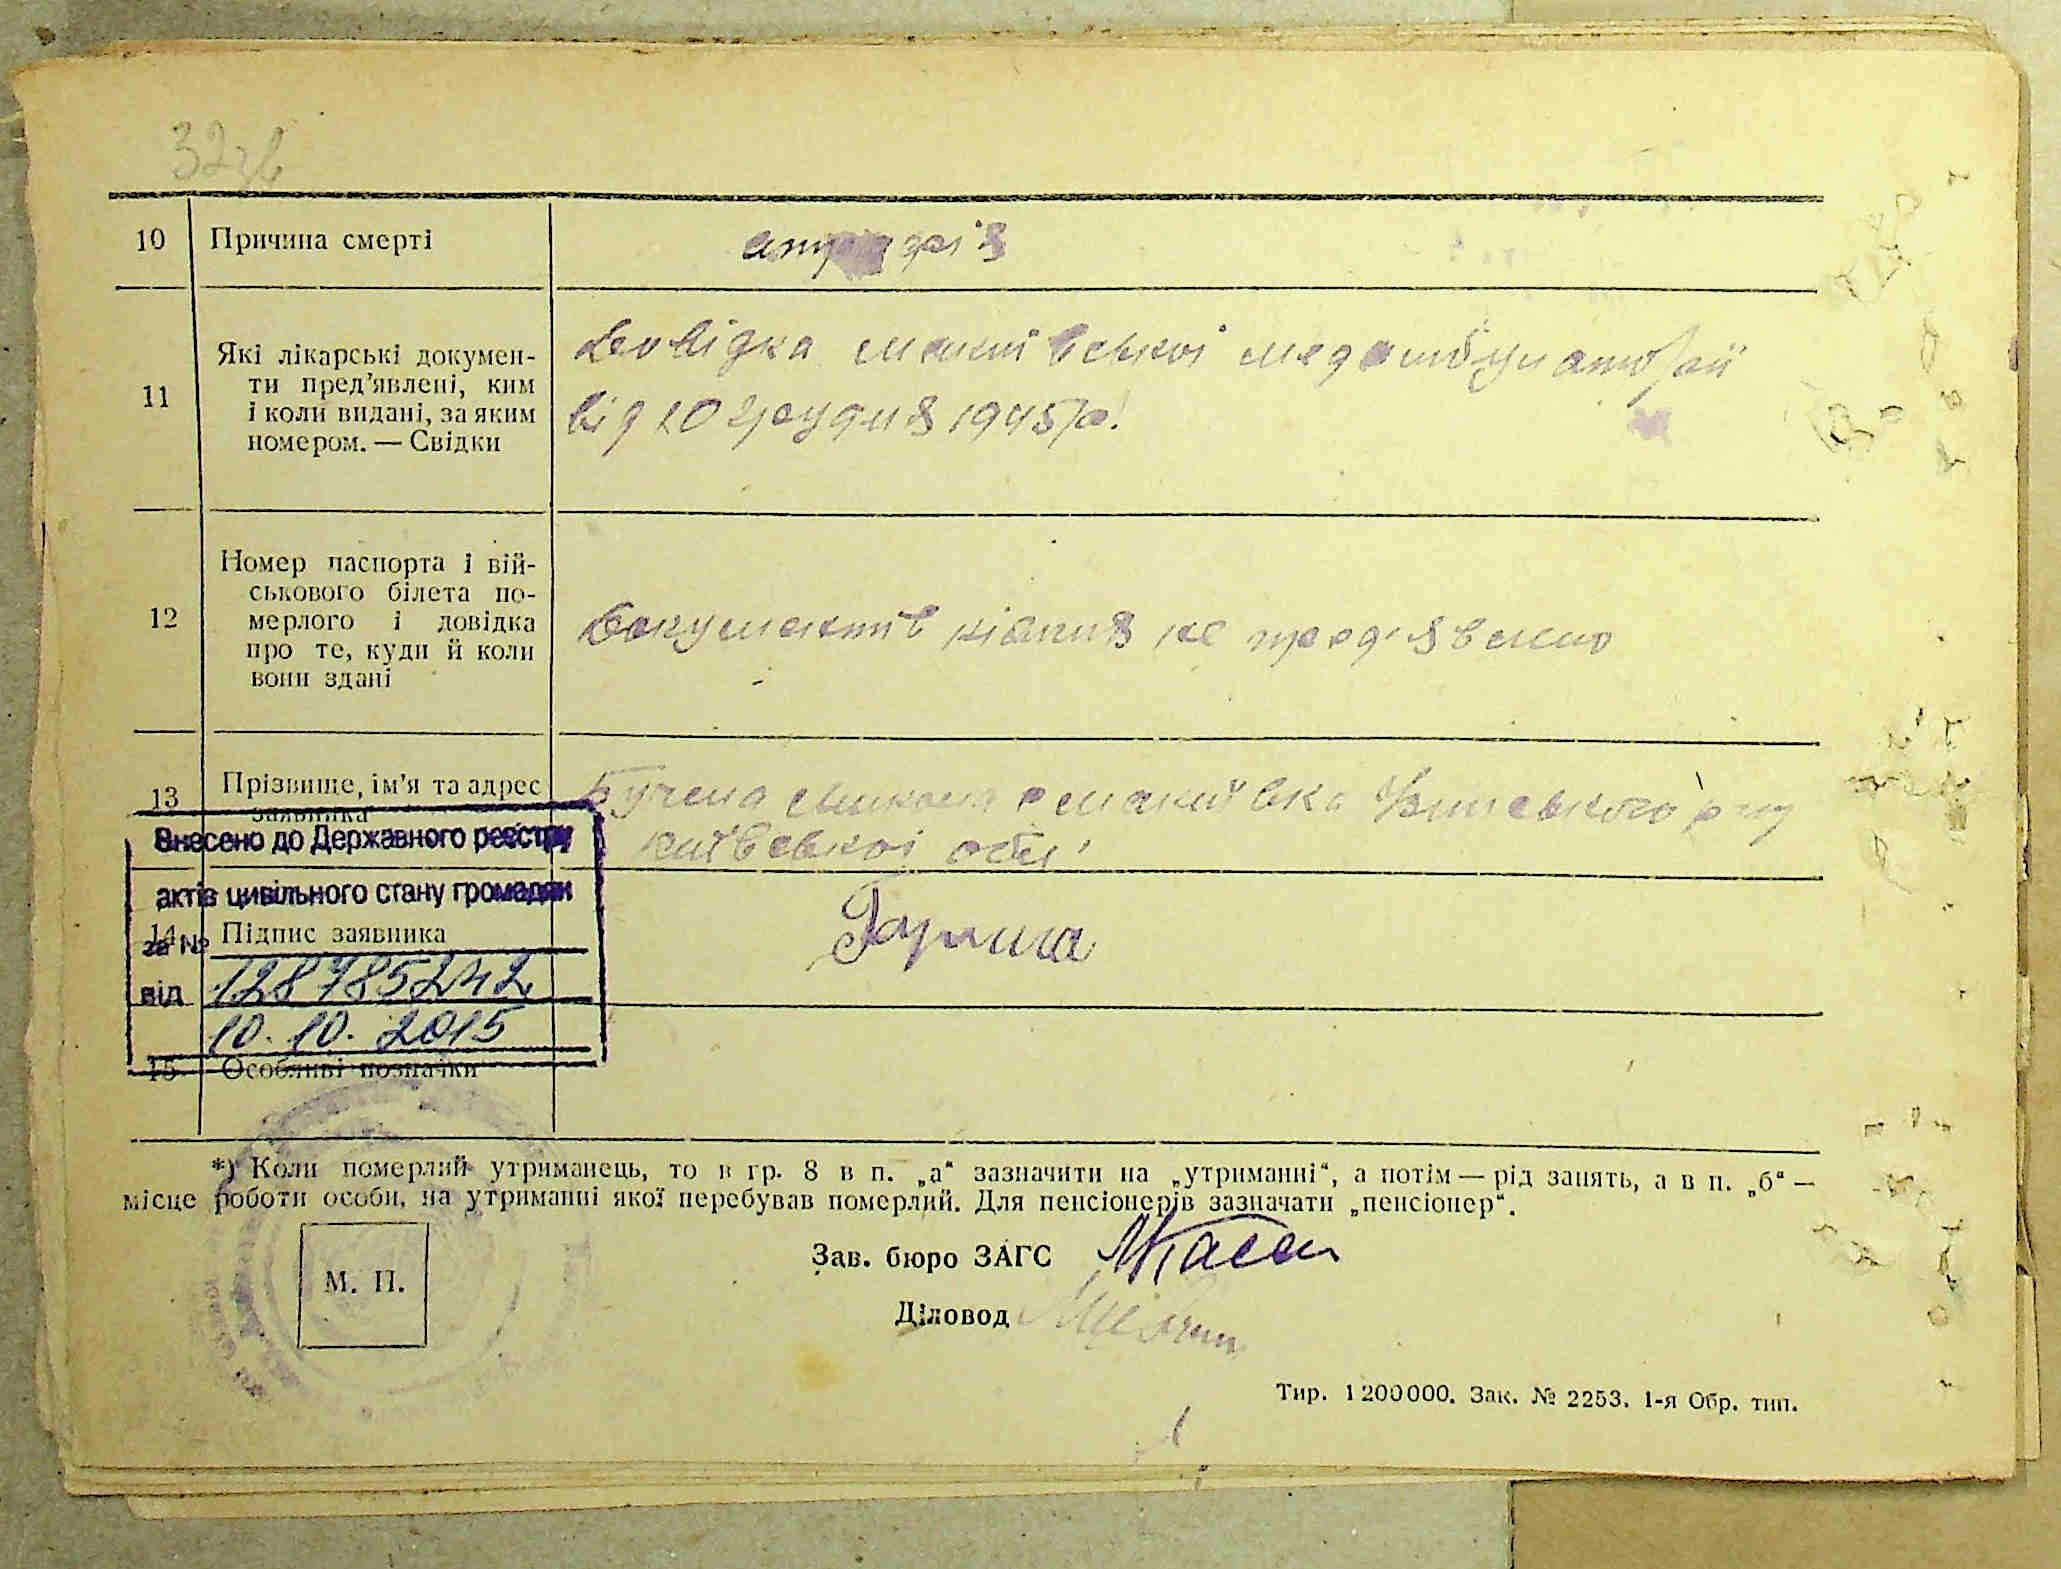 32зв
10 Причина смерті
11 Які лікарські докумен-
ти пред’явлені, ким
і коли видані, за яким
номером. — Свідки
Довідка маківської медамбулаторії
від 20 грудня 1945 р.
12 Номер паспорта і вій-
ськового білета по-
мерлого і довідка
про те, куди й коли
вони здані
Документів ніяких не пред'явлено
13 Прізвище, ім’я та адрес
заявника
Микола с Маківка р-ну
Київської обл.
Внесено до Державного реєстру
актів цивільного стану громадян
за №
14 Підпис заявника
128785242
від
10.10.2015
15 Особливі позначки
*) Коли померлий утриманець, то в гр. 8 в п. „а“ зазначити на „утриманні“, а потім — рід занять, а в п. „б“ —
місце роботи особи, на утриманні якої перебував померлий. Для пенсіонерів зазначати „пенсіонер“.
М. П.
Зав. бюро ЗАГС
Діловод
Тир. 1200000. Зак. № 2253. 1-я Обр. тип.